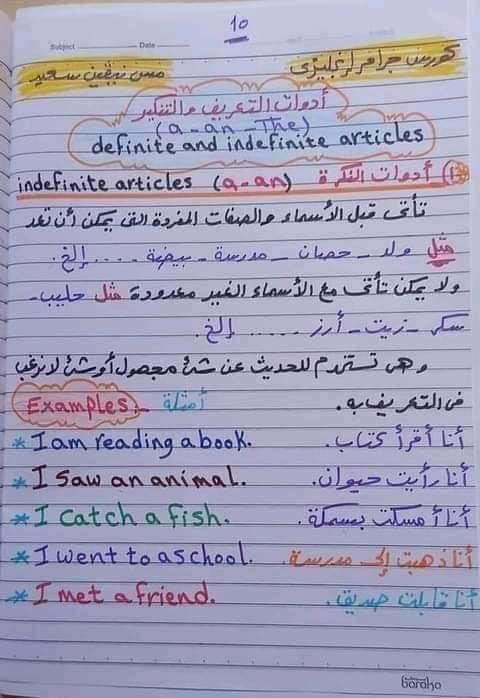 10
Subject Date
كورس جرامر إنجليزي مس نيفين سعيد
أدوات التعريف والتنكير
(a - an - The)
definite and indefinite articles
indefinite articles (a-an) 1) أدوات النكرة
تأتى قبل الأسماء والصفات المفردة التى يمكن أن تعد
مثل ولد - حصان - مدرسة - بيضة .... إلخ.
ولا يمكن تأتى مع الأسماء الغير معدودة مثل حليب -
سكر - زيت - أرز ..... إلخ.
وهى تستخدم للحديث عن شئ مجهول أو شئ لا نرغب
فى التعريف به.
Examples:- أمثلة
* I am reading a book. أنا أقرأ كتاب.
* I saw an animal. أنا رأيت حيوان.
* I catch a fish. أنا أمسكت بسمكة.
* I went to a school. أنا ذهبت إلى مدرسة.
* I met a friend. أنا قابلت صديق.
baraka